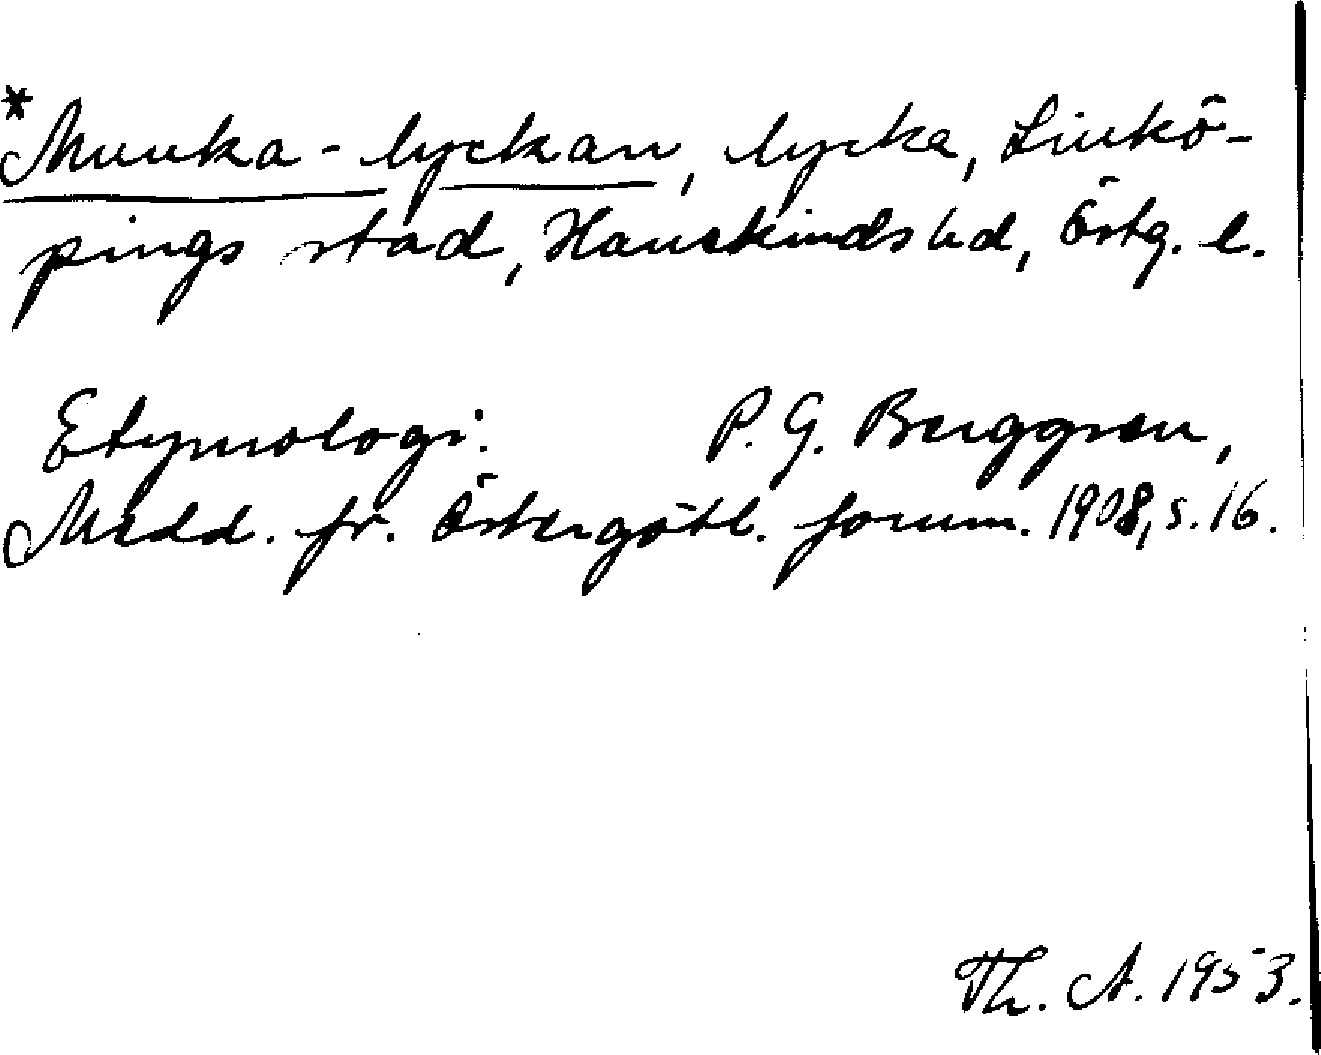 *Munka-lyckan, lycka, Linkö-
pings stad, Hanekinds hd, Östg. l.
Etymologi. P. G. Berggren,
Medd. fr. Östergötl. fornm. 1908, s. 16.
Th. A. 1953.